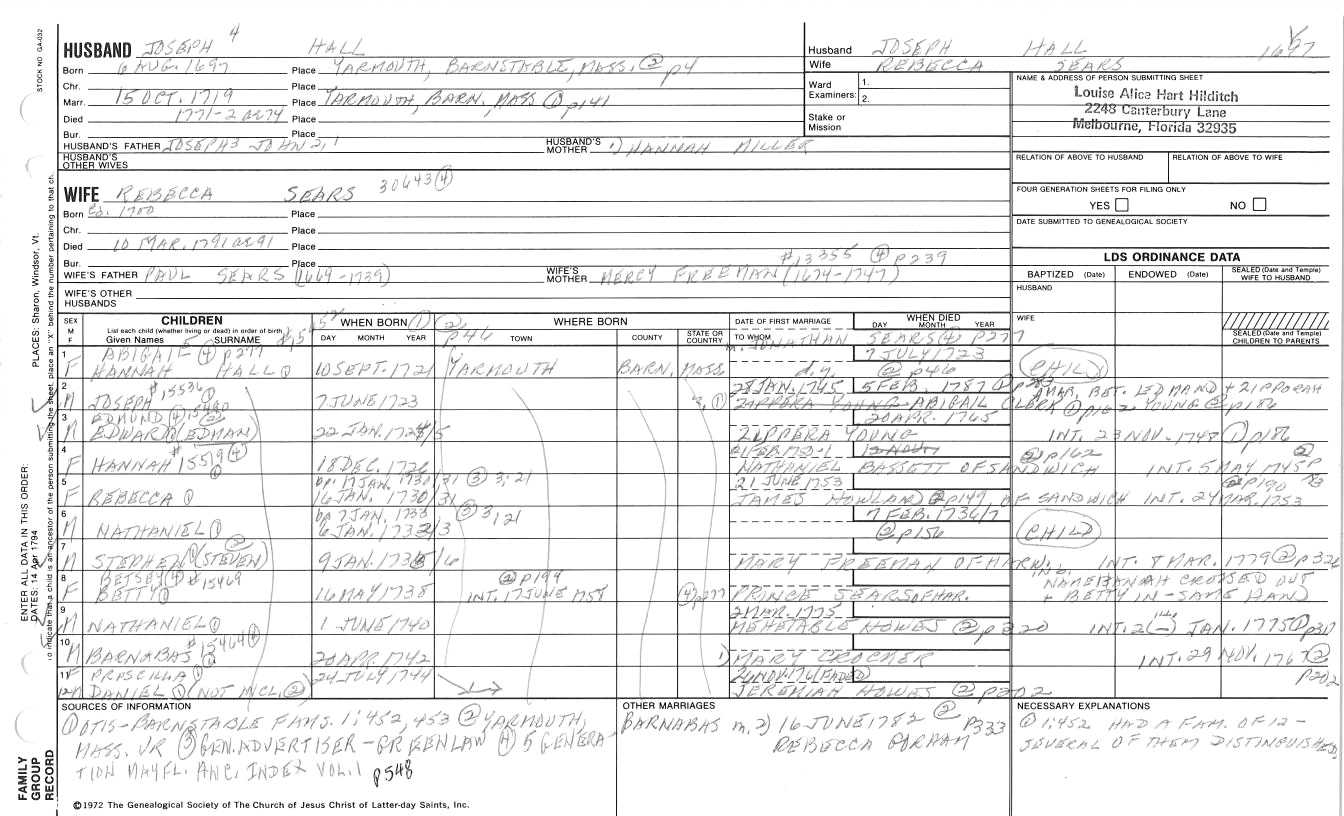 STOCK NO. GA-032
HUSBAND JOSEPH 4 HALL
Born 6 AUG. 1697 Place YARMOUTH, BARNSTABLE, MASS. ② p4
Chr. Place
Marr. 15 OCT. 1719 Place YARMOUTH, BARN, MASS ① p141
Died 1771-2 ae 74 Place
Bur. Place
HUSBAND'S FATHER JOSEPH 3 JOHN 2, 1 HUSBAND'S MOTHER 1) HANNAH MILLER
HUSBAND'S OTHER WIVES
WIFE REBECCA SEARS 30643 ④
Born Ca. 1700 Place
Chr. Place
Died 10 MAR. 1791 ae 91 Place
Bur. Place #13355 ④ p239
WIFE'S FATHER PAUL SEARS (1669-1739) WIFE'S MOTHER MERCY FREEMAN (1674-1747)
WIFE'S OTHER HUSBANDS
Husband JOSEPH HALL 1697
Wife REBECCA SEARS
Ward Examiners: 1.
2.
Stake or Mission
NAME & ADDRESS OF PERSON SUBMITTING SHEET
Louise Alice Hart Hilditch
2248 Canterbury Lane
Melbourne, Florida 32935
RELATION OF ABOVE TO HUSBAND RELATION OF ABOVE TO WIFE
FOUR GENERATION SHEETS FOR FILING ONLY
YES NO
DATE SUBMITTED TO GENEALOGICAL SOCIETY
LDS ORDINANCE DATA
BAPTIZED (Date) ENDOWED (Date) SEALED (Date and Temple) WIFE TO HUSBAND
HUSBAND
WIFE
SEALED (Date and Temple) CHILDREN TO PARENTS
SEX M F
CHILDREN
List each child (whether living or dead) in order of birth
Given Names SURNAME
WHEN BORN ① ② p46
DAY MONTH YEAR
WHERE BORN
TOWN COUNTY STATE OR COUNTRY
DATE OF FIRST MARRIAGE
TO WHOM
WHEN DIED
DAY MONTH YEAR
m. JONATHAN SEARS (4) P277
1 F ABIGAIL ④ p277 7 JULY 1723
HANNAH HALL ① 10 SEPT. 1721 YARMOUTH BARN, MASS d.y. ② p46 CHILD
2 M #15536 ④ 28 JAN. 1745 5 FEB. 1787 ①
JOSEPH 7 JUNE 1723 ZIPPERA YOUNG ABIGAIL CLERK ② p162
MAR. BET. EDMAND + ZIPPORAH YOUNG ② p186
3 M EDMUND ④ 15480 20 APR. 1765
EDWARD (EDMAN) ② 22 JAN. 1724/5 ZIPPERA YOUNG INT. 23 NOV. 1748 ① p186
4 F HANNAH #15519 ④ 18 DEC. 1726 NATHANIEL BASSETT OF SANDWICH ② p162 INT. 5 MAY 1745
5 F bp. 17 JAN. 1730/31 ③ 3:21 21 JUNE 1753 ② p190
REBECCA ① 16 JAN. 1730/31 JAMES HOWLAND ② p149, OF SANDWICH INT. 24 MAR. 1753
6 M bp 7 JAN. 1733 ③ 3, 21 7 FEB. 1736/7
NATHANIEL ① 6 JAN. 1732/3 ② p156 CHILD
7 M STEPHEN ① (STEVEN) ② 9 JAN. 1735/6 MARY FREEMAN OF HARW. INT. 8 MAR. 1779 ② p326
8 F BETSEY ④ #15469 ② p194 IND. NAME HANNAH CROSSED OUT
BETTY ① 16 MAY 1738 INT. 17 JUNE 1758 ④ p277 PRINCE SEARS OF HAR. + BETTY IN - SAME HAND
9 M 2 MAR. 1775
NATHANIEL ① 1 JUNE 1740 MEHETABLE HOWES ② p320 INT. 2(—) JAN. 1775 ① p317
10 M #15464 ④
BARNABAS ① 20 APR. 1742 1) MARY CROCKER INT. 29 NOV. 1767 ② p202
11 F PRISCILLA ① 24 JULY 1744 26 NOV. 176 (FADED)
12 M DANIEL ① (NOT INCL. ②) JEREMIAH HOWES ② p202
SOURCES OF INFORMATION
① OTIS-BARNSTABLE FAMS. 1:452, 453 ② YARMOUTH,
MASS. VR ③ GEN. ADVERTISER-GREENLAW ④ 5 GENERA
TION MAYFL. ANC. INDEX VOL. 1 p548
OTHER MARRIAGES
BARNABAS m. 2) 16 JUNE 1782 ② P333
REBECCA GORHAM
NECESSARY EXPLANATIONS
① 1:452 HAD A FAM. OF 12 -
SEVERAL OF THEM DISTINGUISHED
©1972 The Genealogical Society of The Church of Jesus Christ of Latter-day Saints, Inc.
FAMILY GROUP RECORD
ENTER ALL DATA IN THIS ORDER:
DATES: 14 Apr 1794
PLACES: Sharon, Windsor, Vt.
to indicate that a child is an ancestor of the person submitting the sheet, place an "X" behind the number pertaining to that ch.